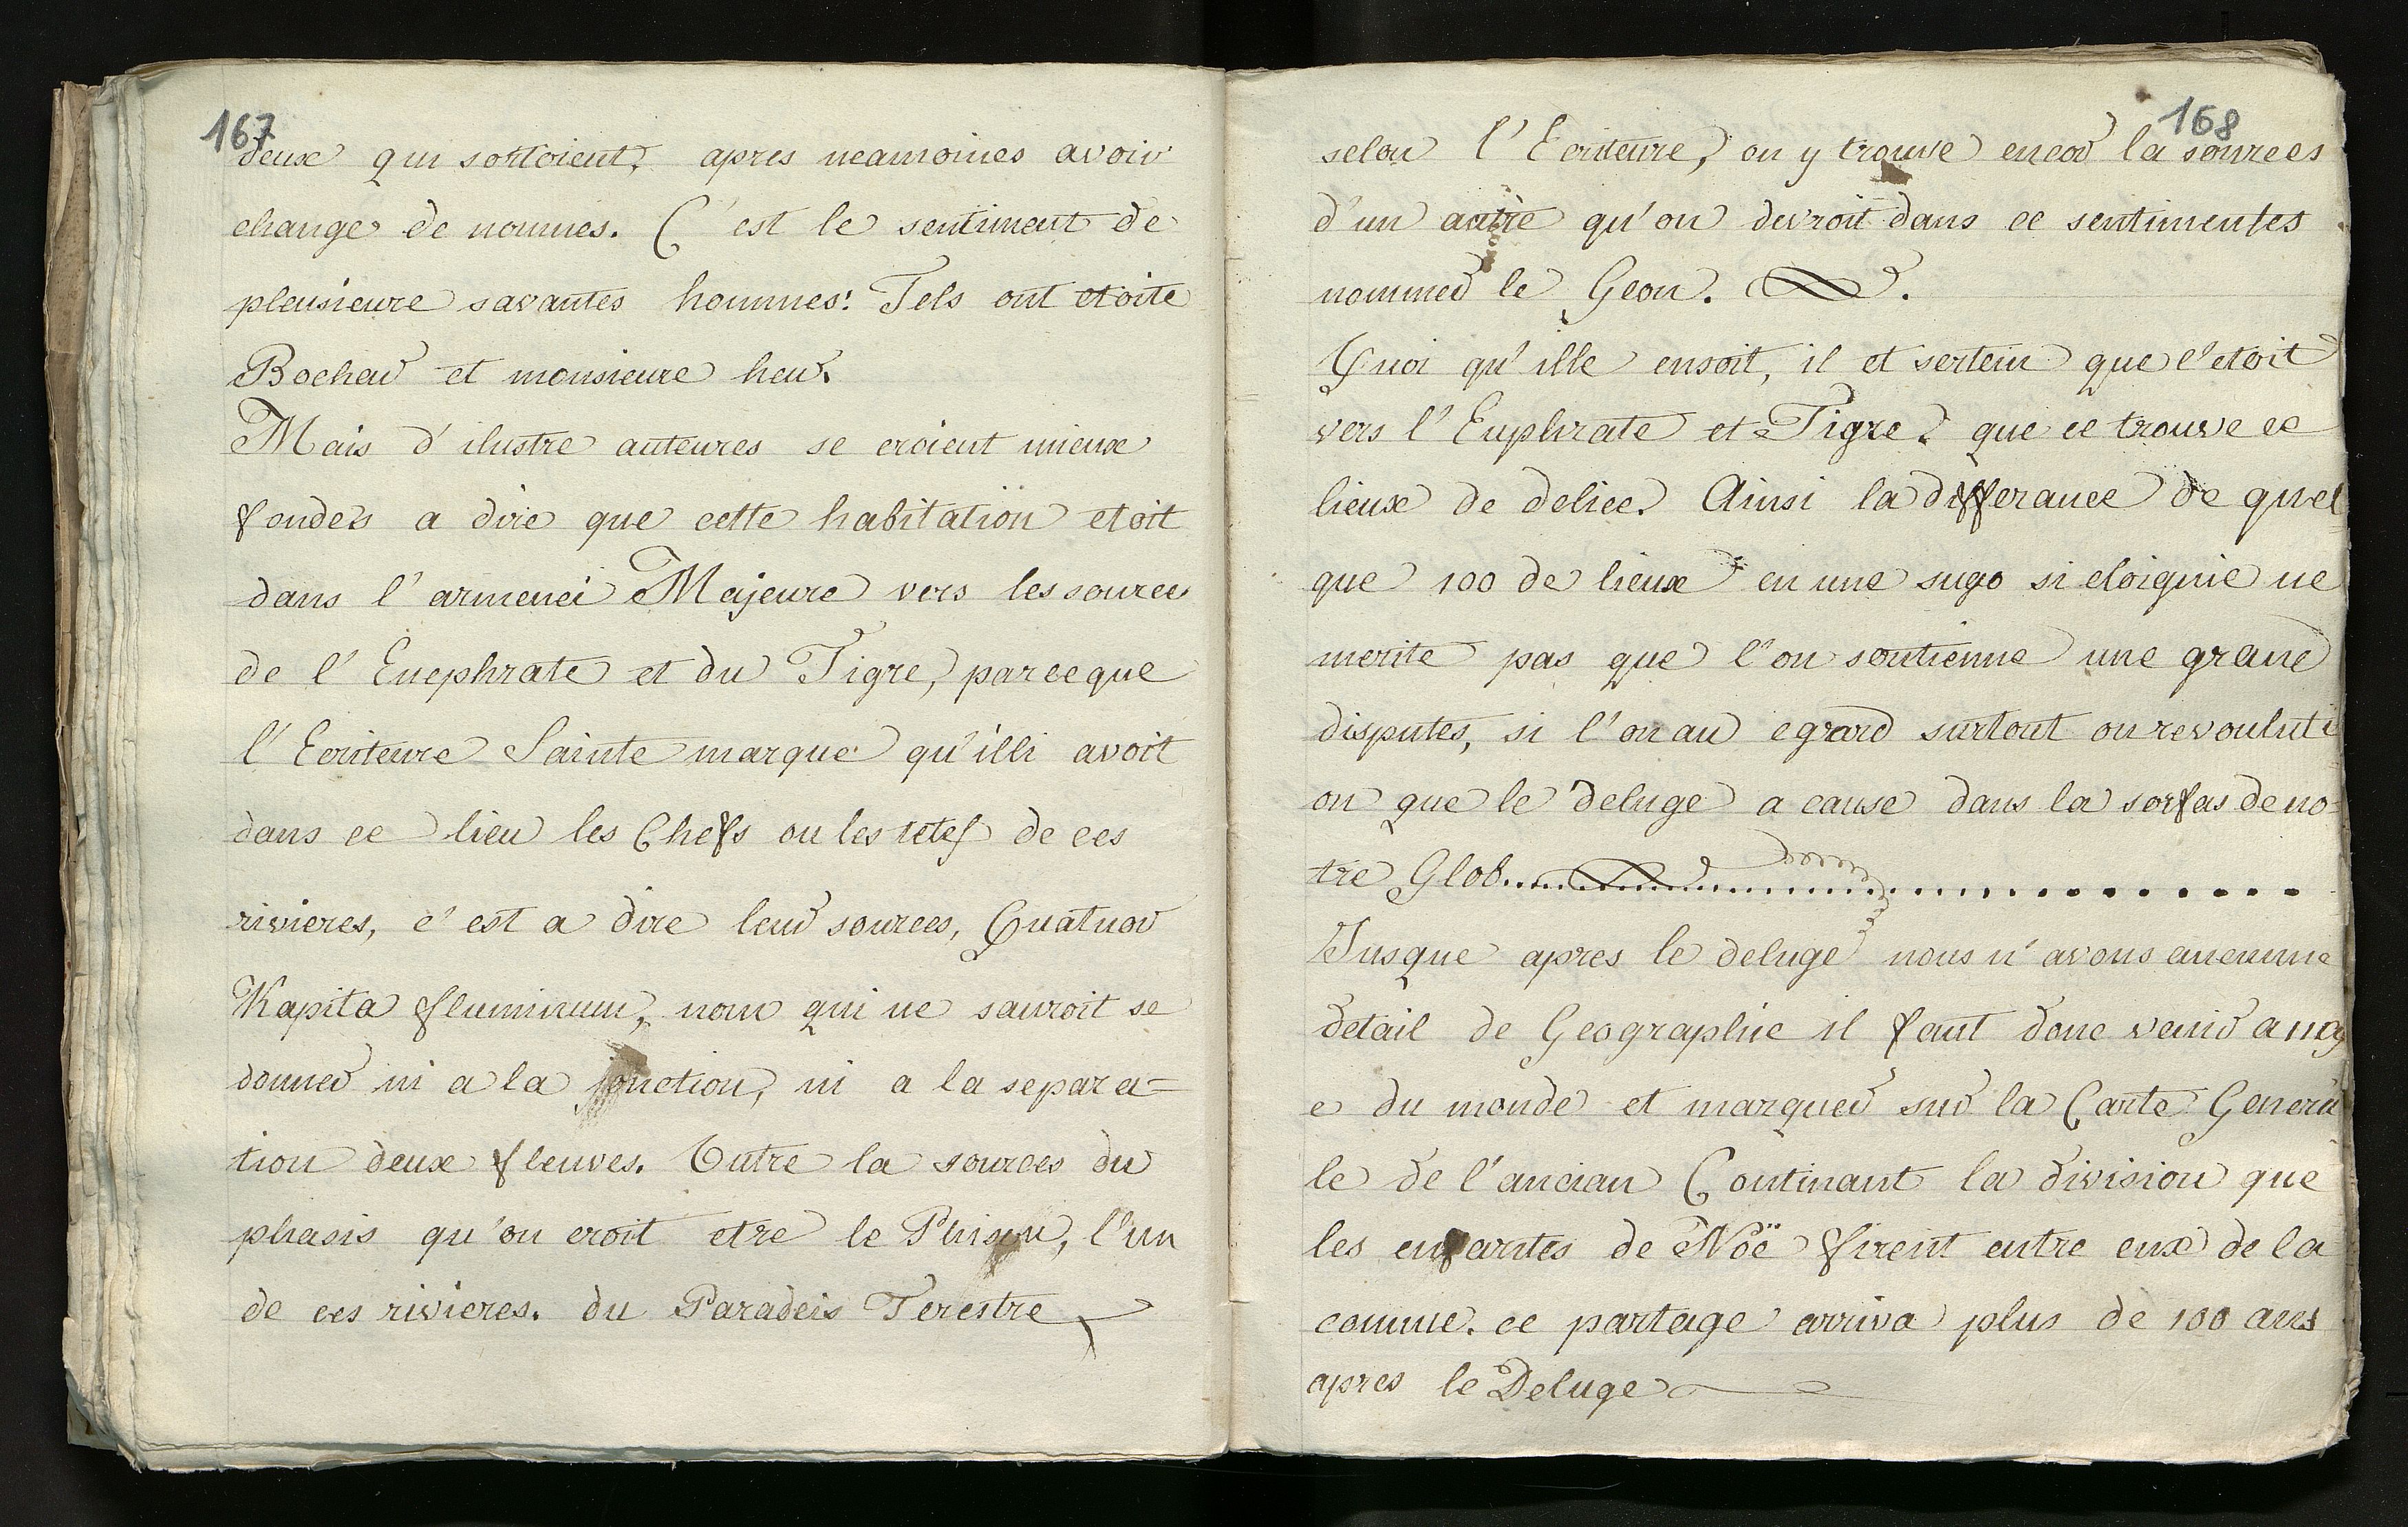 167
deux qui sortoient, apres neamoines avoir
change de nommes. C'est le sentiment de
pleusieure savantes hommes: Tels ont etoite
Bocher et monsieure heu.
Mais d'ilustre auteures se croient mieux
fondés a dire que cette habitation etoit
dans l'armenei Majeure vers les sources
de l'Euephrate et du Tigre, parceque
l'Ecriteure Sainte marque qu'illi avoit
dans ce lieu les Chefs ou les tetes de ces
rivieres, c'est a dire leur sources, Quatuor
Kapita fluminum, nom qui ne sauroit se
donner ni a la jonction, ni a la separa=
tion deux fleuves. Outre la sources du
phasis qu'on croit etre le Phison, l'un
de ces rivieres. du Paradeis Terestre
168
selon l'Ecriteure, on y trouve encor la sources
d'un autre qu'on devroit dans ce sentimentes
nommer le Geon.
Quoi qu'ille ensoit, il et sertein que c'etoit
vers l'Euphrate et Tigre. que ce trouve ce
lieux de delice. Ainsi la differance de quel
que 100 de lieux en une sugo si eloignie ne
merite pas que l'on soutienne une grane
disputes, si l'on au egrard surtout on revouluti
on que le deluge a cause dans la sorfas de no=
tre Glob..............................
Jusque apres le deluge nous n'avons aucunne
detail de Geographie il faut donc venir a nag
e du monde et marquer sur la Carte Genera
le de l'ancian Continant la division que
les enfantes de Noë firent entre eux de la
comme. ce partage arriva plus de 100 ans
apres le Deluge